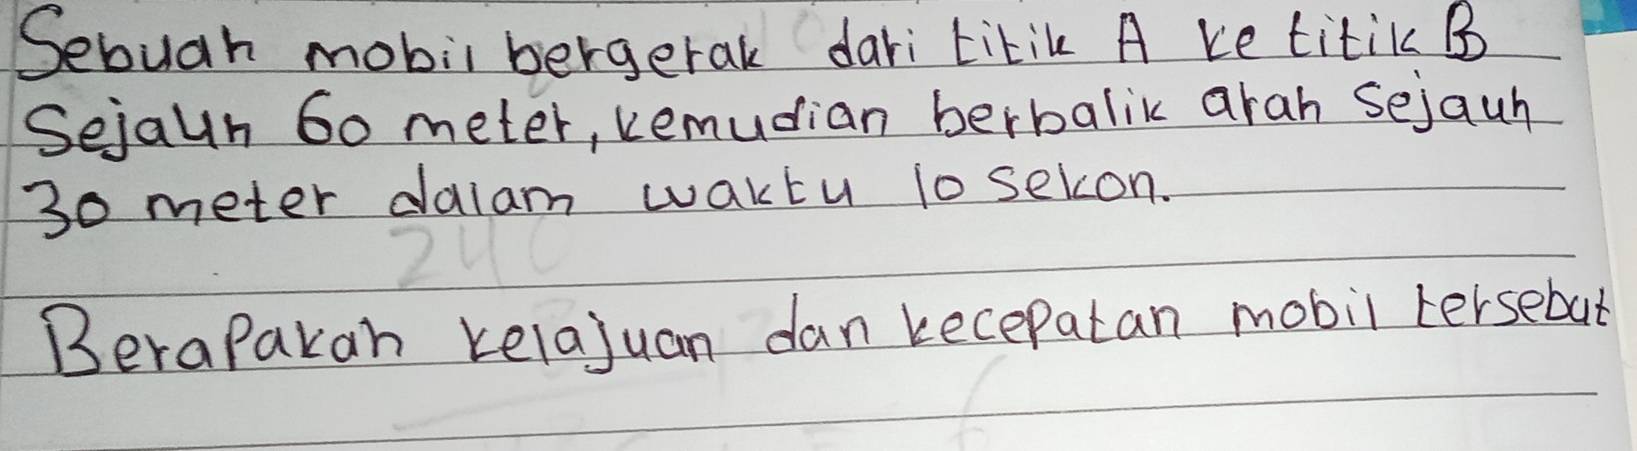 Sebuah mobil bergerak dari titik A ke titik B
Sejauh 60 meter, kemudian berbalik arah sejauh
30 meter dalam waktu 10 sekon.
240
Berapakah kelajuan dan kecepatan mobil tersebut